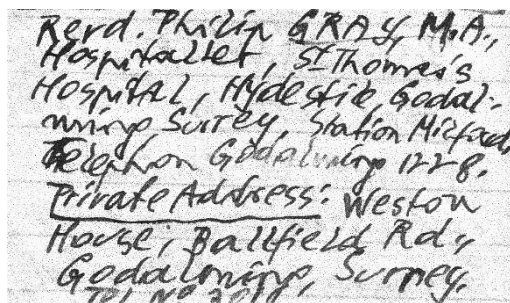 Revd. Philip GRAY, M.A.,
Hospitaller, St Thomas's
Hospital, Hydestile, Godal-
ming Surrey, Station Milford,
Telephon Godalming 1228.
Private Address: Weston
House, Ballfield Rd.,
Godalming, Surrey.
Tel. No